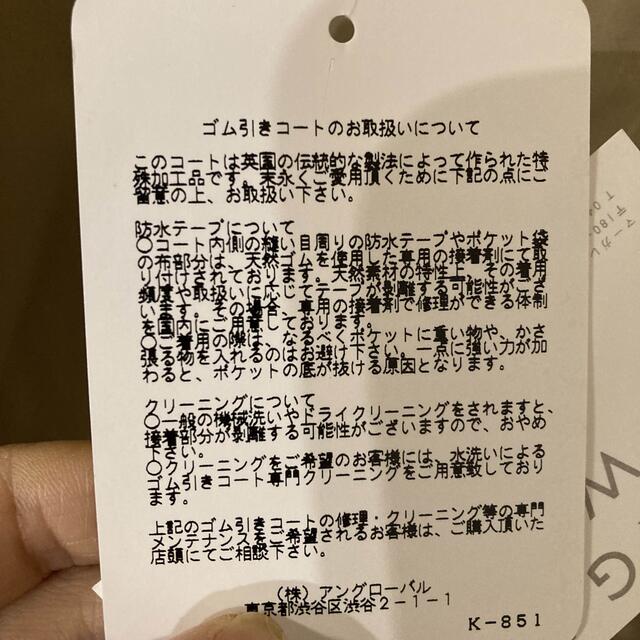 ゴム引きコートのお取扱いについて
このコートは英国の伝統的な製法によって作られた特
殊加工品です。末永くご愛用頂くために下記の点にご
留意の上、お取扱い下さい。
防水テープについて
○コート内側の縫い目周りの防水テープやポケット袋
の布部分は、天然ゴムを使用した専用の接着剤にて取
り付けされております。天然素材の特性上、その着用
頻度や取扱いに応じてテープが剥離する可能性がござ
います。その場合、専用の接着剤で修理ができる体制
を国内にご用意しております。
○ご着用の際は、なるべくポケットに重い物や、かさ
張る物を入れるのはお避け下さい。一点に強い力が加
わると、ポケットの底が抜ける原因となります。
クリーニングについて
○一般の機械洗いやドライクリーニングをされますと、
接着部分が剥離する可能性がございますので、おやめ
下さい。
○クリーニングをご希望のお客様には、水洗いによる
ゴム引きコート専門クリーニングをご用意致しており
ます。
上記のゴム引きコートの修理・クリーニング等の専門
メンテナンスをご希望されるお客様は、ご購入頂いた
店頭にてご相談下さい。
(株)アングローバル
東京都渋谷区渋谷2-1-1
K-851
マーガレ
〒180
T 0
W
G